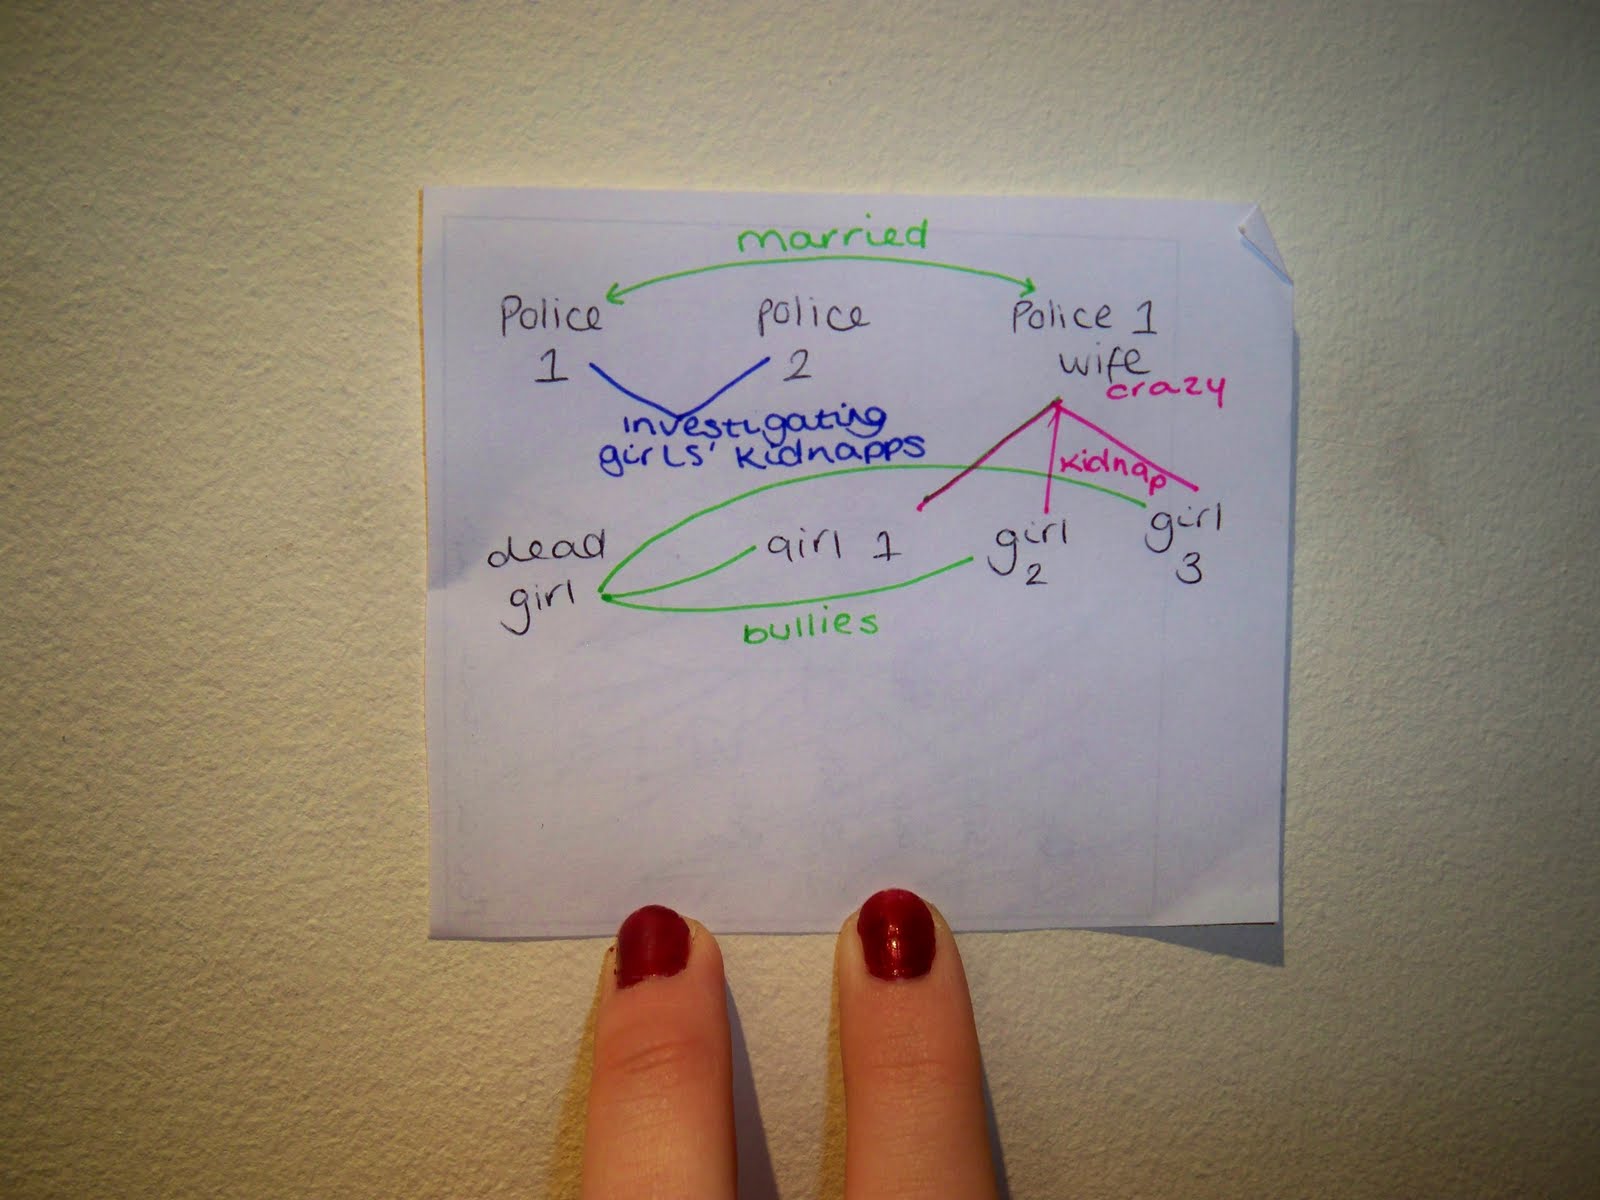 married
Police
1
police
2
Police 1
wife
crazy
investigating
girls' kidnapps
kidnap
dead
girl
girl 1
girl
2
girl
3
bullies